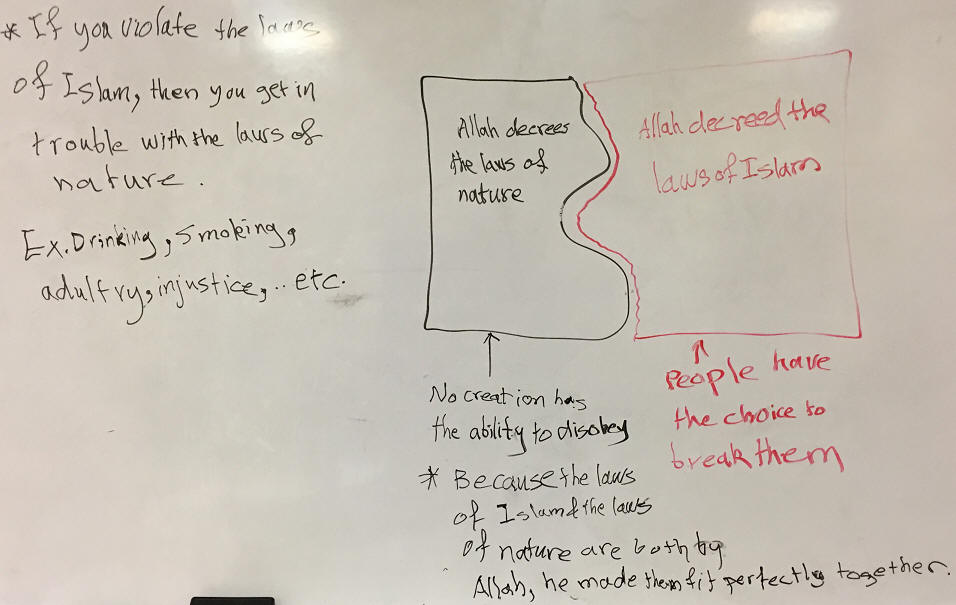 * If you violate the laws
of Islam, then you get in
trouble with the laws of
nature.
Ex. Drinking, smoking,
adultry, injustice, .. etc.
Allah decrees
the laws of
nature
No creation has
the ability to disobey
* Because the laws
of Islam & the laws
of nature are both by
Allah, he made them fit perfectly together.
Allah decreed the
laws of Islam
People have
the choice to
break them